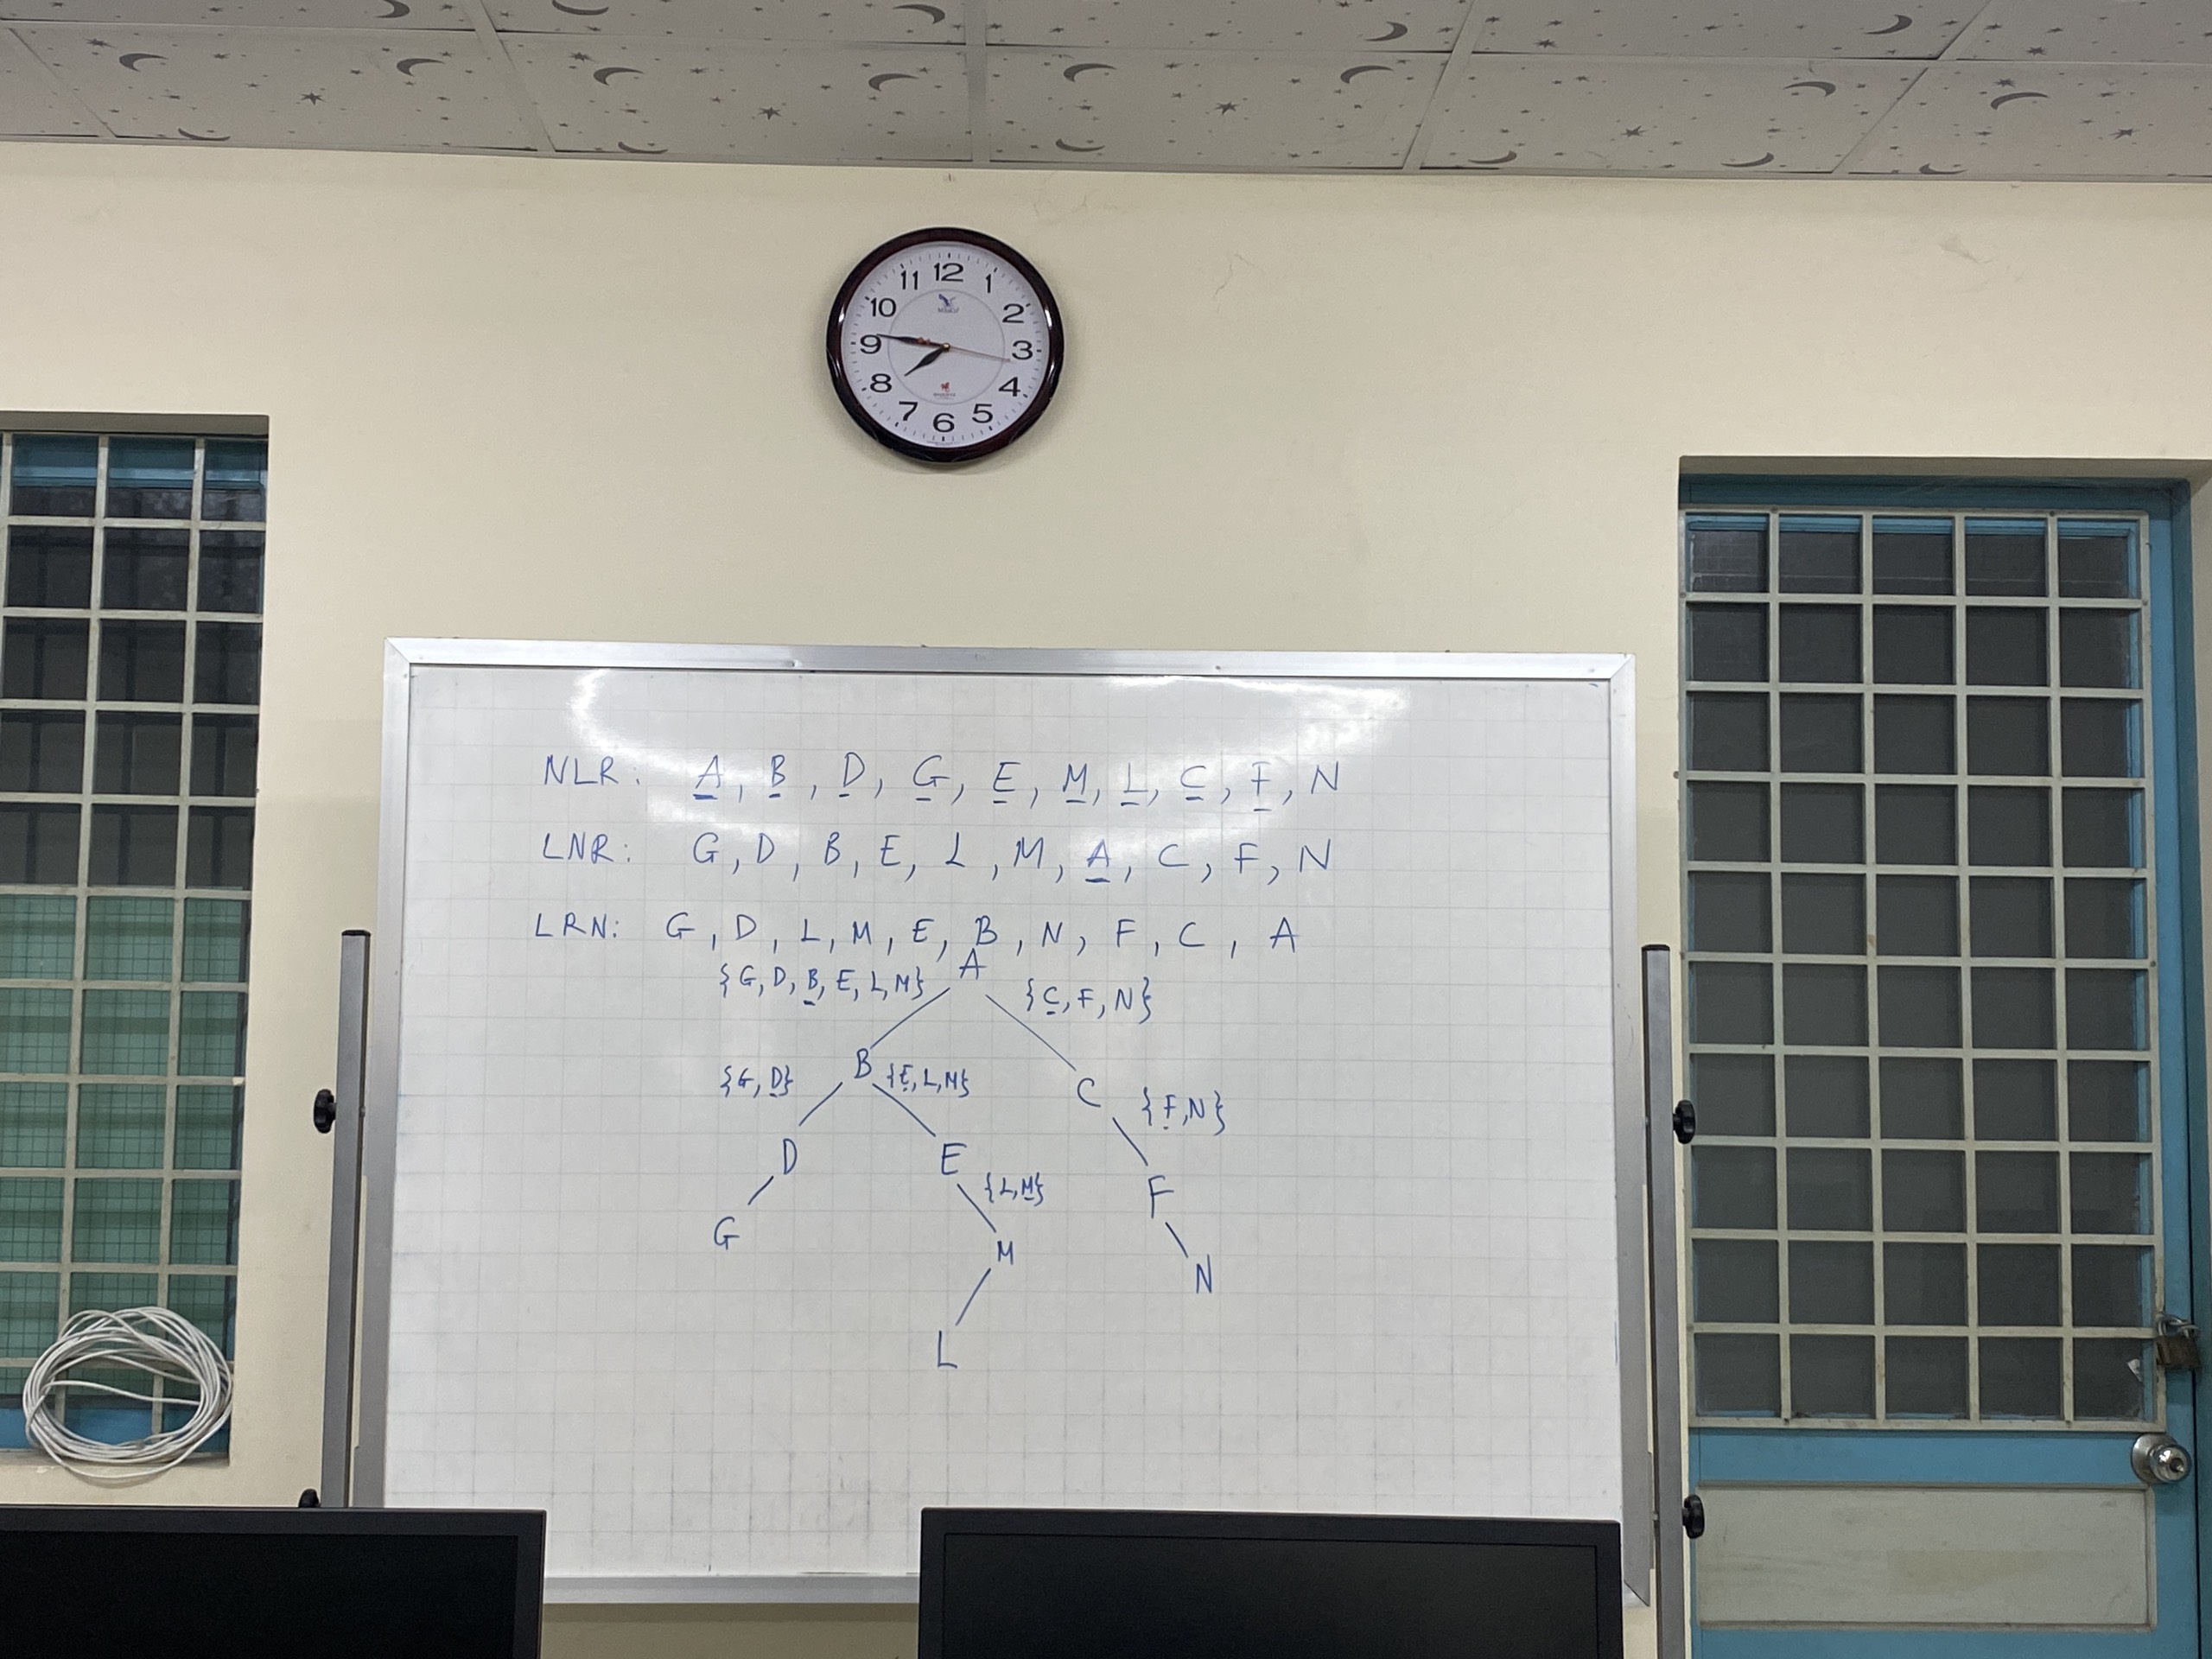 11 12 1
10 2
9 3
8 4
7 6 5
NLR: A, B, D, G, E, M, L, C, F, N
LNR: G, D, B, E, L, M, A, C, F, N
LRN: G, D, L, M, E, B, N, F, C, A
A
{G, D, B, E, L, M} {C, F, N}
B
{G, D} {E, L, M} C {F, N}
D E
{L, M} F
G M N
L